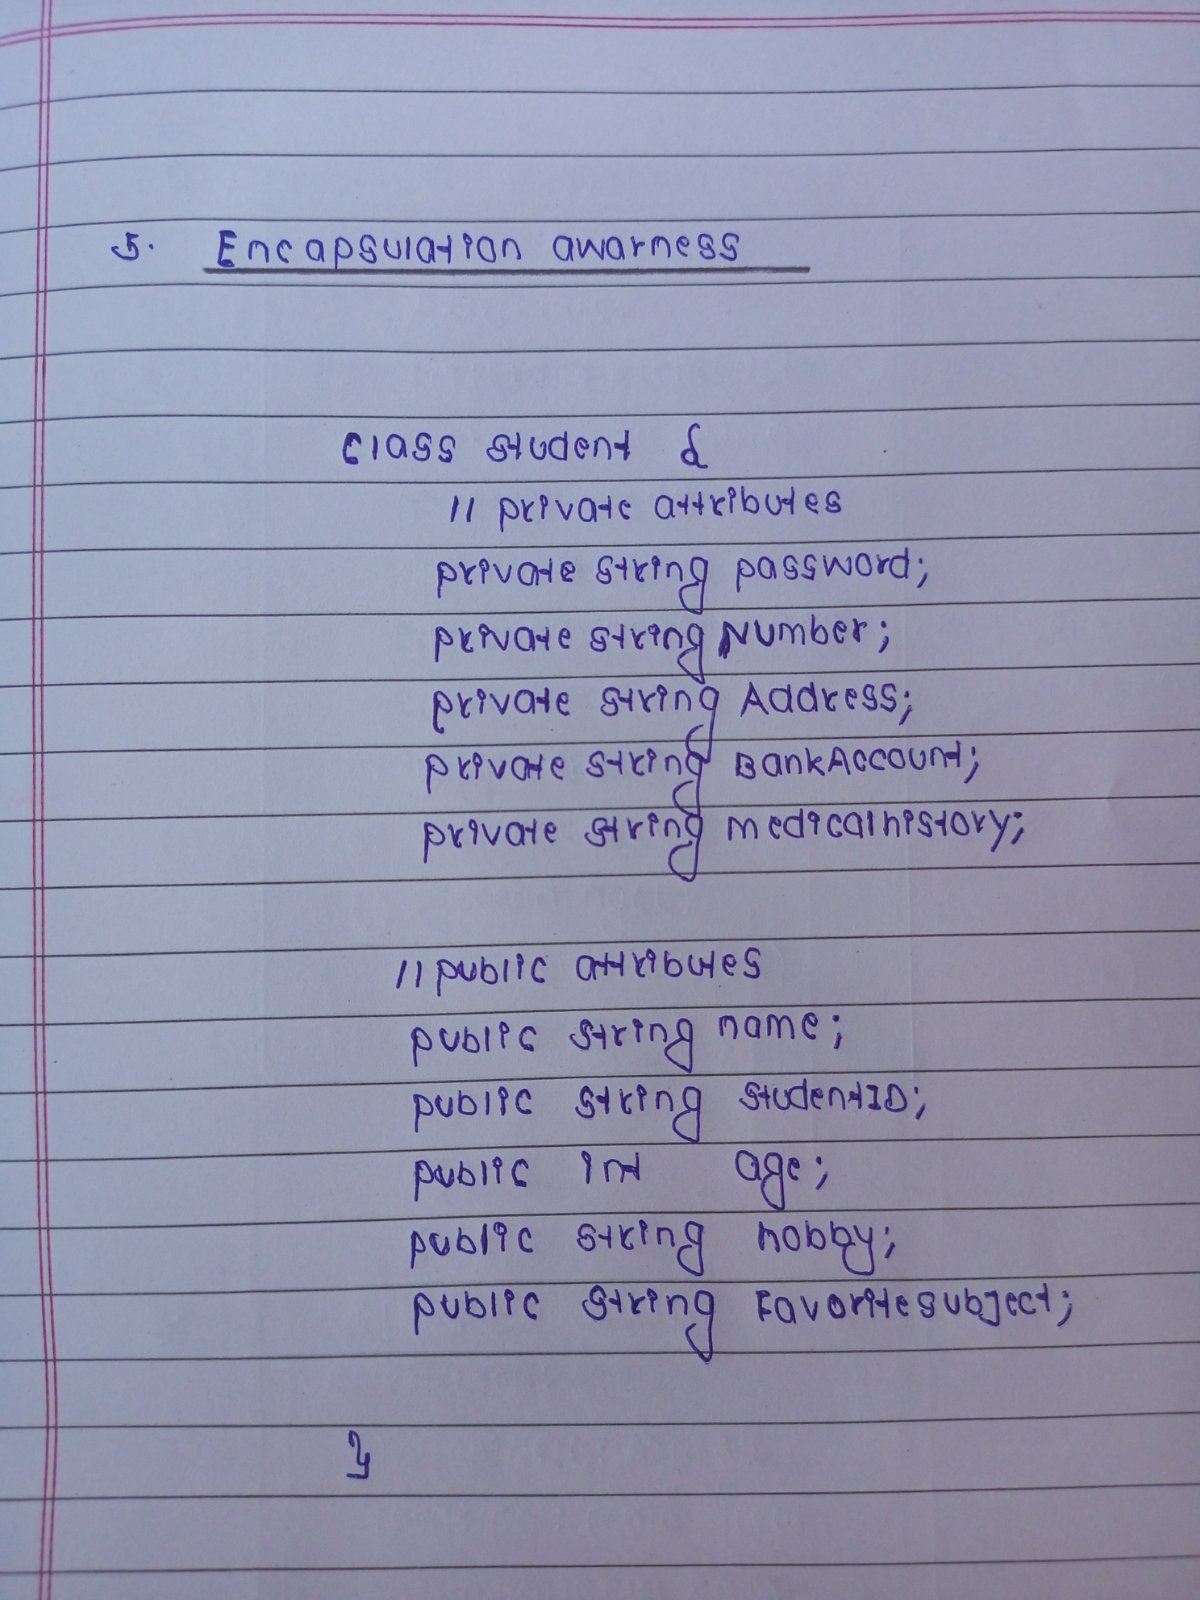 5. Encapsulation awarness
class student {
// private attributes
private string password;
private string Number;
private string Address;
private string BankAccount;
private string medicalhistory;
// public attributes
public string name;
public string studentID;
public int age;
public string hobby;
public string Favoritesubject;
}